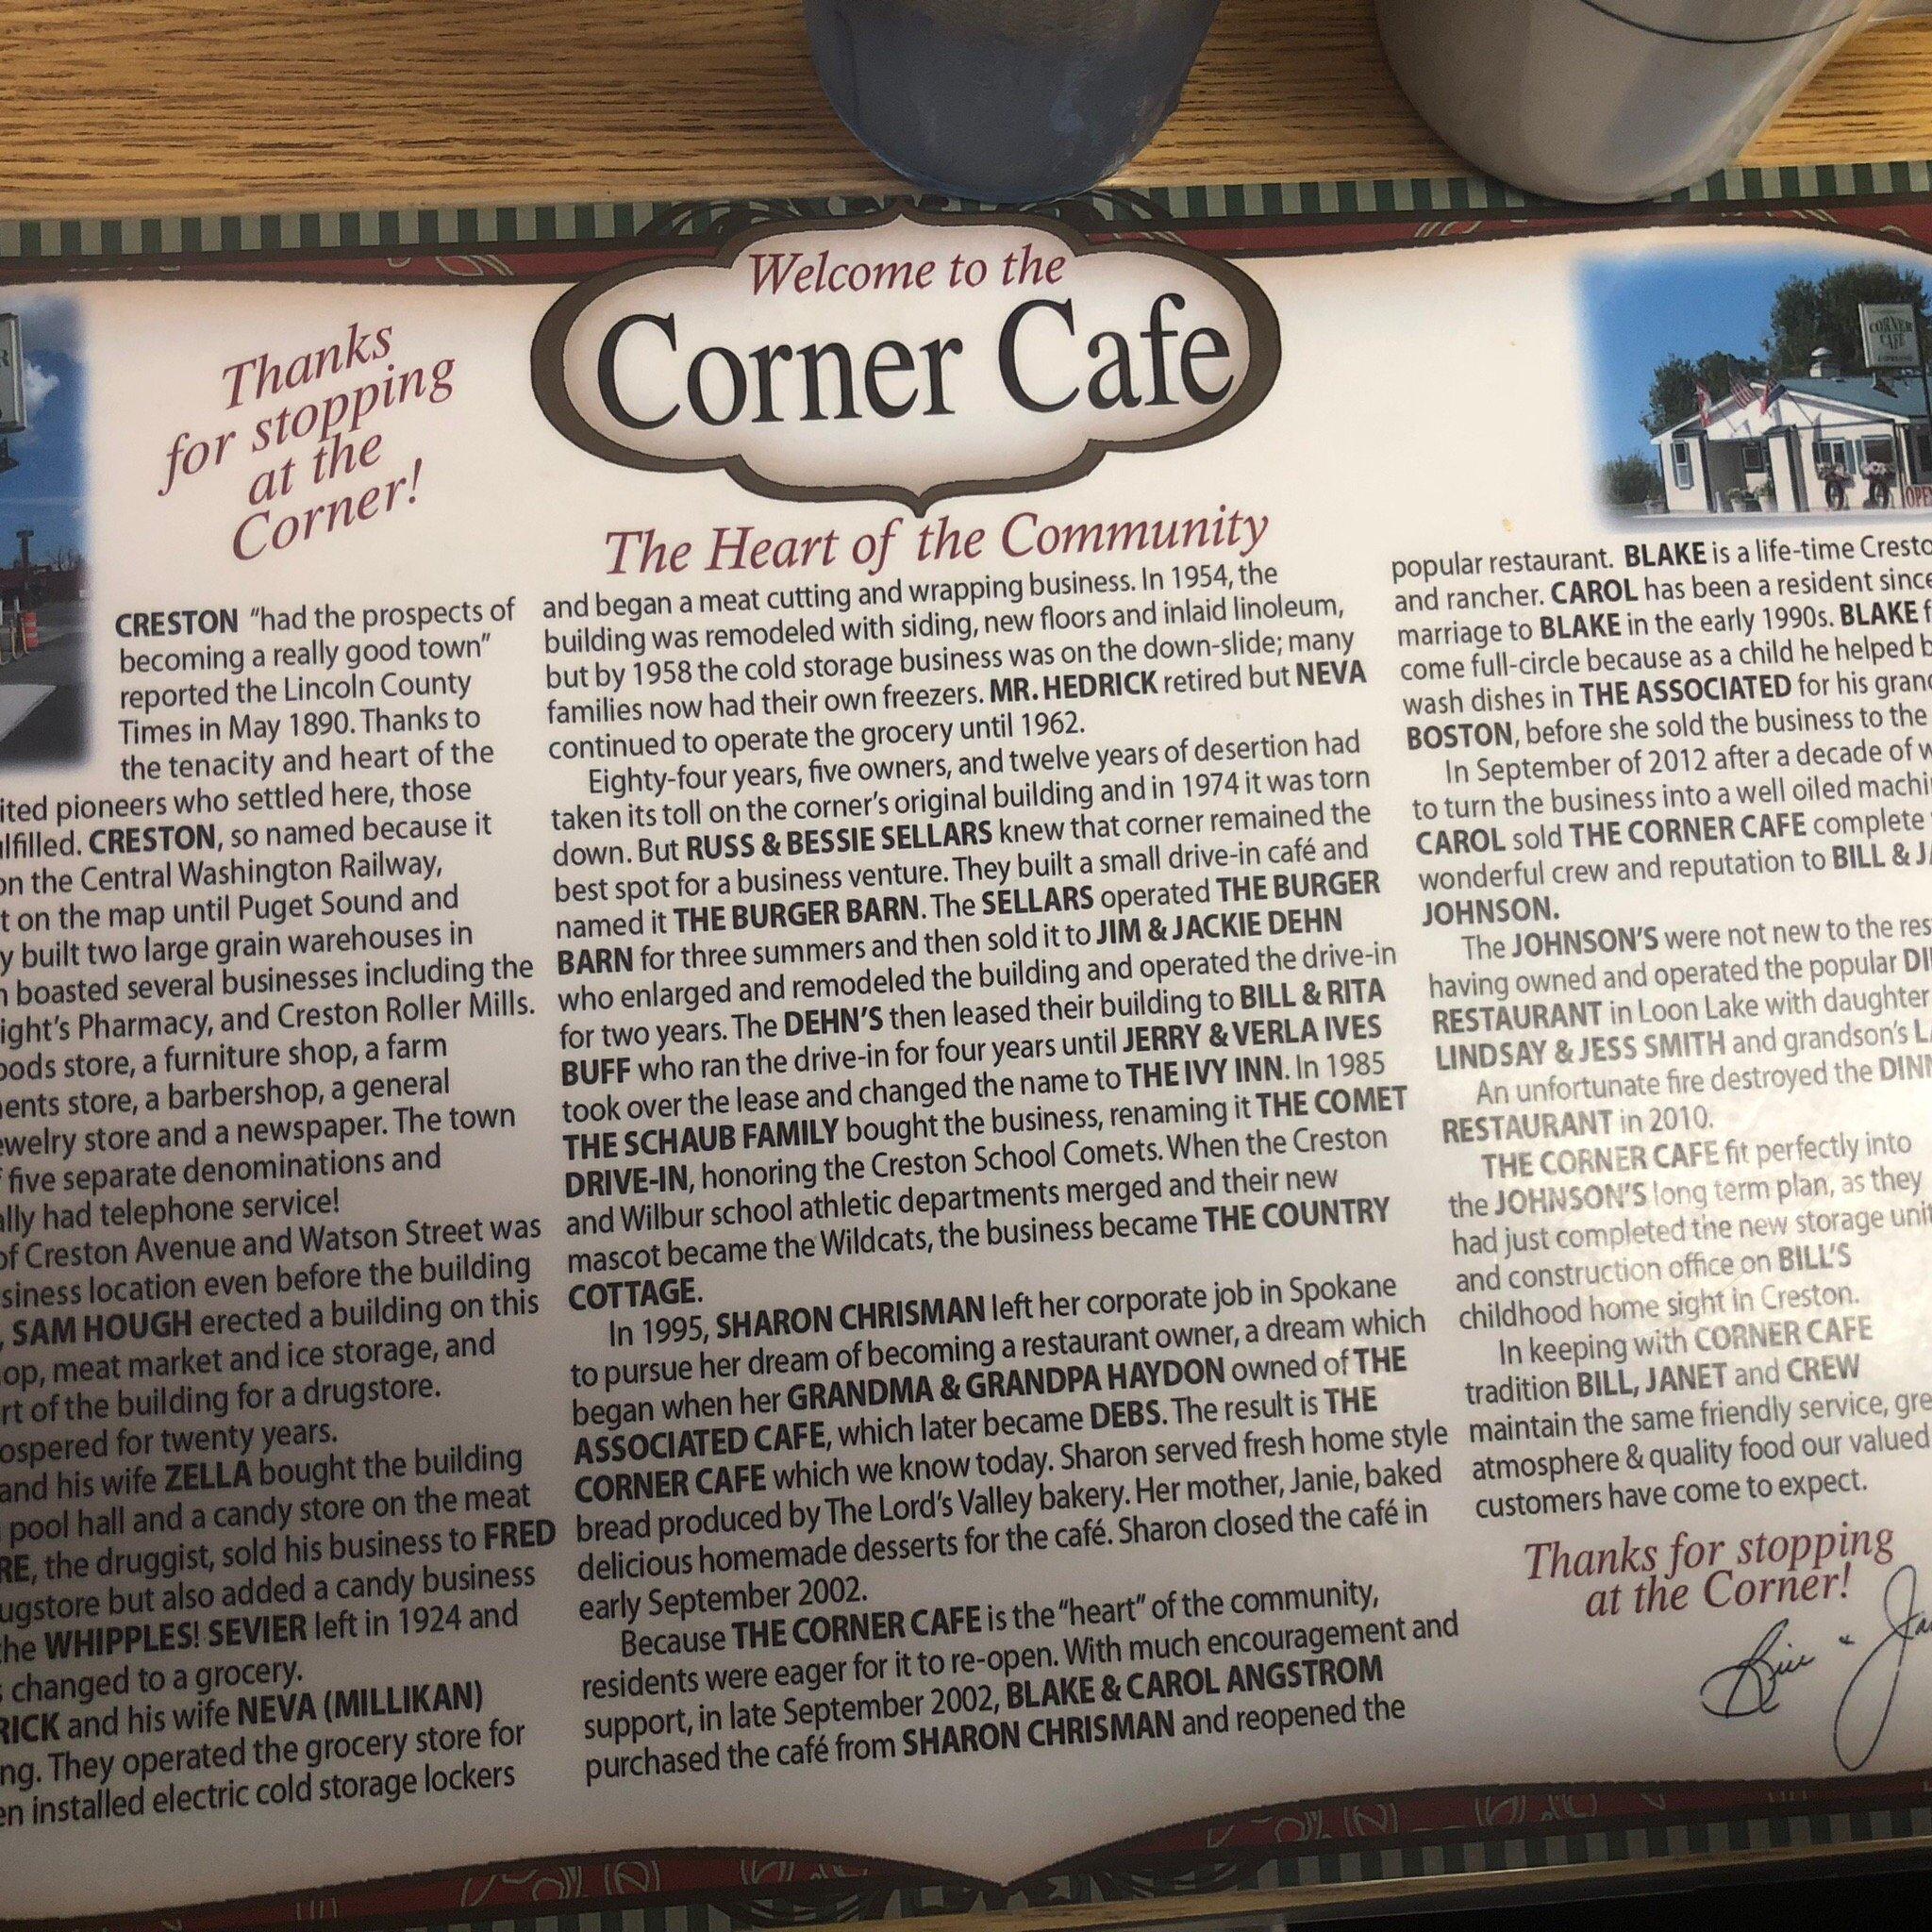 Welcome to the
Corner Cafe
The Heart of the Community
Thanks
for stopping
at the
Corner!
CRESTON "had the prospects of
becoming a really good town"
reported the Lincoln County
Times in May 1890. Thanks to
the tenacity and heart of the
pioneers who settled here, those
CRESTON, so named because it
on the Central Washington Railway,
on the map until Puget Sound and
built two large grain warehouses in
boasted several businesses including the
Pharmacy, and Creston Roller Mills.
store, a furniture shop, a farm
store, a barbershop, a general
store and a newspaper. The town
five separate denominations and
had telephone service!
of Creston Avenue and Watson Street was
location even before the building
, SAM HOUGH erected a building on this
meat market and ice storage, and
of the building for a drugstore.
for twenty years.
and his wife ZELLA bought the building
pool hall and a candy store on the meat
the druggist, sold his business to FRED
but also added a candy business
WHIPPLES! SEVIER left in 1924 and
changed to a grocery.
and his wife NEVA (MILLIKAN)
They operated the grocery store for
installed electric cold storage lockers
and began a meat cutting and wrapping business. In 1954, the
building was remodeled with siding, new floors and inlaid linoleum,
but by 1958 the cold storage business was on the down-slide; many
families now had their own freezers. MR. HEDRICK retired but NEVA
continued to operate the grocery until 1962.
Eighty-four years, five owners, and twelve years of desertion had
taken its toll on the corner's original building and in 1974 it was torn
down. But RUSS & BESSIE SELLARS knew that corner remained the
best spot for a business venture. They built a small drive-in café and
named it THE BURGER BARN. The SELLARS operated THE BURGER
BARN for three summers and then sold it to JIM & JACKIE DEHN
who enlarged and remodeled the building and operated the drive-in
for two years. The DEHN'S then leased their building to BILL & RITA
BUFF who ran the drive-in for four years until JERRY & VERLA IVES
took over the lease and changed the name to THE IVY INN. In 1985
THE SCHAUB FAMILY bought the business, renaming it THE COMET
DRIVE-IN, honoring the Creston School Comets. When the Creston
and Wilbur school athletic departments merged and their new
mascot became the Wildcats, the business became THE COUNTRY
COTTAGE.
In 1995, SHARON CHRISMAN left her corporate job in Spokane
to pursue her dream of becoming a restaurant owner, a dream which
began when her GRANDMA & GRANDPA HAYDON owned of THE
ASSOCIATED CAFE, which later became DEBS. The result is THE
CORNER CAFE which we know today. Sharon served fresh home style
bread produced by The Lord's Valley bakery. Her mother, Janie, baked
delicious homemade desserts for the café. Sharon closed the café in
early September 2002.
Because THE CORNER CAFE is the "heart" of the community,
residents were eager for it to re-open. With much encouragement and
support, in late September 2002, BLAKE & CAROL ANGSTROM
purchased the café from SHARON CHRISMAN and reopened the
CORNER
CAFE
popular restaurant. BLAKE is a life-time
and rancher. CAROL has been a resident since
marriage to BLAKE in the early 1990s. BLAKE
come full-circle because as a child he helped
wash dishes in THE ASSOCIATED for his
BOSTON, before she sold the business to the
In September of 2012 after a decade of
to turn the business into a well oiled
CAROL sold THE CORNER CAFE complete
wonderful crew and reputation to BILL &
JOHNSON.
The JOHNSON'S were not new to the
having owned and operated the popular
RESTAURANT in Loon Lake with daughter
LINDSAY & JESS SMITH and grandson's
An unfortunate fire destroyed the
RESTAURANT in 2010.
THE CORNER CAFE fit perfectly into
the JOHNSON'S long term plan, as they
had just completed the new storage
and construction office on BILL'S
childhood home sight in Creston.
In keeping with CORNER CAFE
tradition BILL, JANET and CREW
maintain the same friendly service,
atmosphere & quality food our valued
customers have come to expect.
Thanks for stopping
at the Corner!